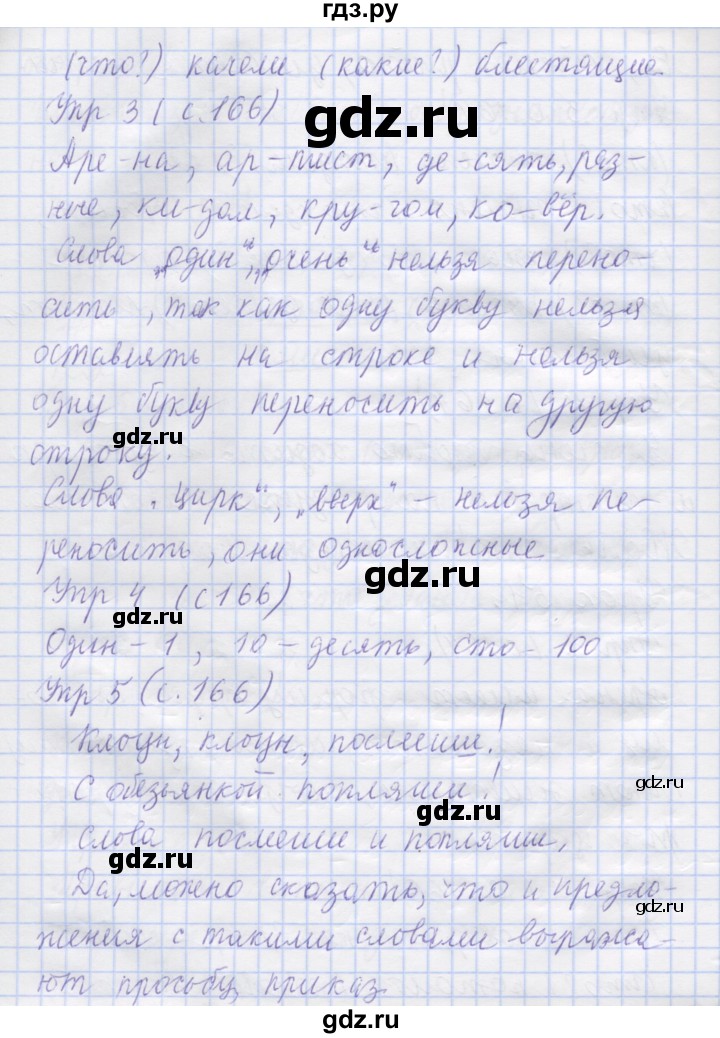 гдз.ру
(что?) качели (какие?) блестящие.
Упр 3 (с.166)
gdz.ru
Аре-на, ар-тист, де-сять, раз-
ные, ки-дал, кру-гом, ко-вёр.
Слова „один“, „очень“ нельзя перено-
сить, так как одну букву нельзя
оставлять на строке и нельзя
одну букву переносить на другую
gdz.ru
строку.
Слова „цирк“, „вверх“ – нельзя пе-
реносить, они односложные
gdz.ru
Упр 4 (с 166)
gdz.ru
Один – 1, 10 – десять, сто – 100
Упр 5 (с.166)
Клоун, клоун, посмеши!
gdz.ru
С обезьянкой попляши!
gdz.ru
Слова посмеши и попляши.
gdz.ru
Да, можно сказать, что и предло-
gdz.ru
жения с такими словами выража-
ют просьбу, приказ
gdz.ru